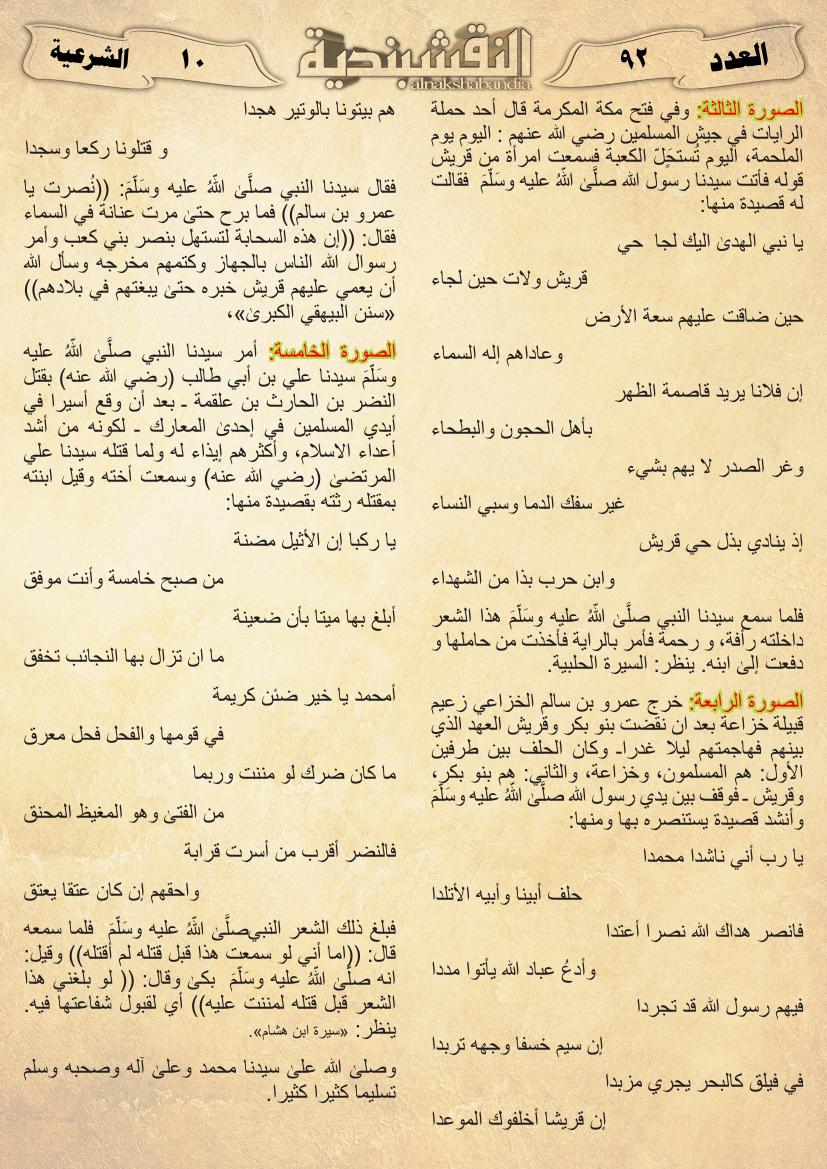 العدد
٩٢
النقشبندية
alnakshabandia
١٠
الشرعية
الصورة الثالثة: وفي فتح مكة المكرمة قال أحد حملة
الرايات في جيش المسلمين رضي الله عنهم : اليوم يوم
الملحمة، اليوم تُستحَلّ الكعبة فسمعت امرأة من قريش
قوله فأتت سيدنا رسول الله صلَّىٰ اللهُ عليه وسَلَّمَ فقالت
له قصيدة منها:
يا نبي الهدىٰ اليك لجا حي
قريش ولات حين لجاء
حين ضاقت عليهم سعة الأرض
وعاداهم إله السماء
إن فلانا يريد قاصمة الظهر
بأهل الحجون والبطحاء
وغر الصدر لا يهم بشيء
غير سفك الدما وسبي النساء
إذ ينادي بذل حي قريش
وابن حرب بذا من الشهداء
فلما سمع سيدنا النبي صلَّىٰ اللهُ عليه وسَلَّمَ هذا الشعر
داخلته رأفة، و رحمة فأمر بالراية فأخذت من حاملها و
دفعت إلىٰ ابنه. ينظر: السيرة الحلبية.
الصورة الرابعة: خرج عمرو بن سالم الخزاعي زعيم
قبيلة خزاعة بعد ان نقضت بنو بكر وقريش العهد الذي
بينهم فهاجمتهم ليلا غدراـ وكان الحلف بين طرفين
الأول: هم المسلمون، وخزاعة، والثاني: هم بنو بكر،
وقريش ـ فوقف بين يدي رسول الله صلَّىٰ اللهُ عليه وسَلَّمَ
وأنشد قصيدة يستنصره بها ومنها:
يا رب أني ناشدا محمدا
حلف أبينا وأبيه الأتلدا
فانصر هداك الله نصرا أعتدا
وأدعُ عباد الله يأتوا مددا
فيهم رسول الله قد تجردا
إن سيم خسفا وجهه تربدا
في فيلق كالبحر يجري مزبدا
إن قريشا أخلفوك الموعدا
هم بيتونا بالوتير هجدا
و قتلونا ركعا وسجدا
فقال سيدنا النبي صلَّىٰ اللهُ عليه وسَلَّمَ: ((نُصرت يا
عمرو بن سالم)) فما برح حتىٰ مرت عنانة في السماء
فقال: ((إن هذه السحابة لتستهل بنصر بني كعب وأمر
رسوال الله الناس بالجهاز وكتمهم مخرجه وسأل الله
أن يعمي عليهم قريش خبره حتىٰ يبغتهم في بلادهم))
«سنن البيهقي الكبرىٰ»،
الصورة الخامسة: أمر سيدنا النبي صلَّىٰ اللهُ عليه
وسَلَّمَ سيدنا علي بن أبي طالب (رضي الله عنه) بقتل
النضر بن الحارث بن علقمة ـ بعد أن وقع أسيرا في
أيدي المسلمين في إحدىٰ المعارك ـ لكونه من أشد
أعداء الاسلام، وأكثرهم إيذاء له ولما قتله سيدنا علي
المرتضىٰ (رضي الله عنه) وسمعت أخته وقيل ابنته
بمقتله رثته بقصيدة منها:
يا ركبا إن الأثيل مضنة
من صبح خامسة وأنت موفق
أبلغ بها ميتا بأن ضعينة
ما ان تزال بها النجائب تخفق
أمحمد يا خير ضئن كريمة
في قومها والفحل فحل معرق
ما كان ضرك لو مننت وربما
من الفتىٰ وهو المغيظ المحنق
فالنضر أقرب من أسرت قرابة
واحقهم إن كان عتقا يعتق
فبلغ ذلك الشعر النبيصلَّىٰ اللهُ عليه وسَلَّمَ فلما سمعه
قال: ((اما أني لو سمعت هذا قبل قتله لم أقتله)) وقيل:
انه صلَّىٰ اللهُ عليه وسَلَّمَ بكىٰ وقال: (( لو بلغني هذا
الشعر قبل قتله لمننت عليه)) أي لقبول شفاعتها فيه.
ينظر: «سيرة ابن هشام».
وصلىٰ الله علىٰ سيدنا محمد وعلىٰ آله وصحبه وسلم
تسليما كثيرا كثيرا.